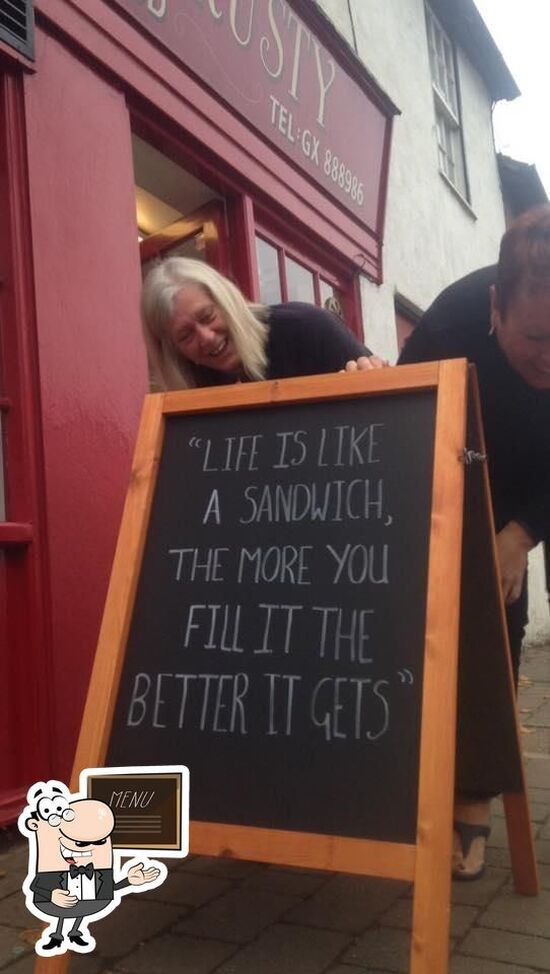 TEL: GX 888986
“LIFE IS LIKE
A SANDWICH,
THE MORE YOU
FILL IT THE
BETTER IT GETS”
MENU